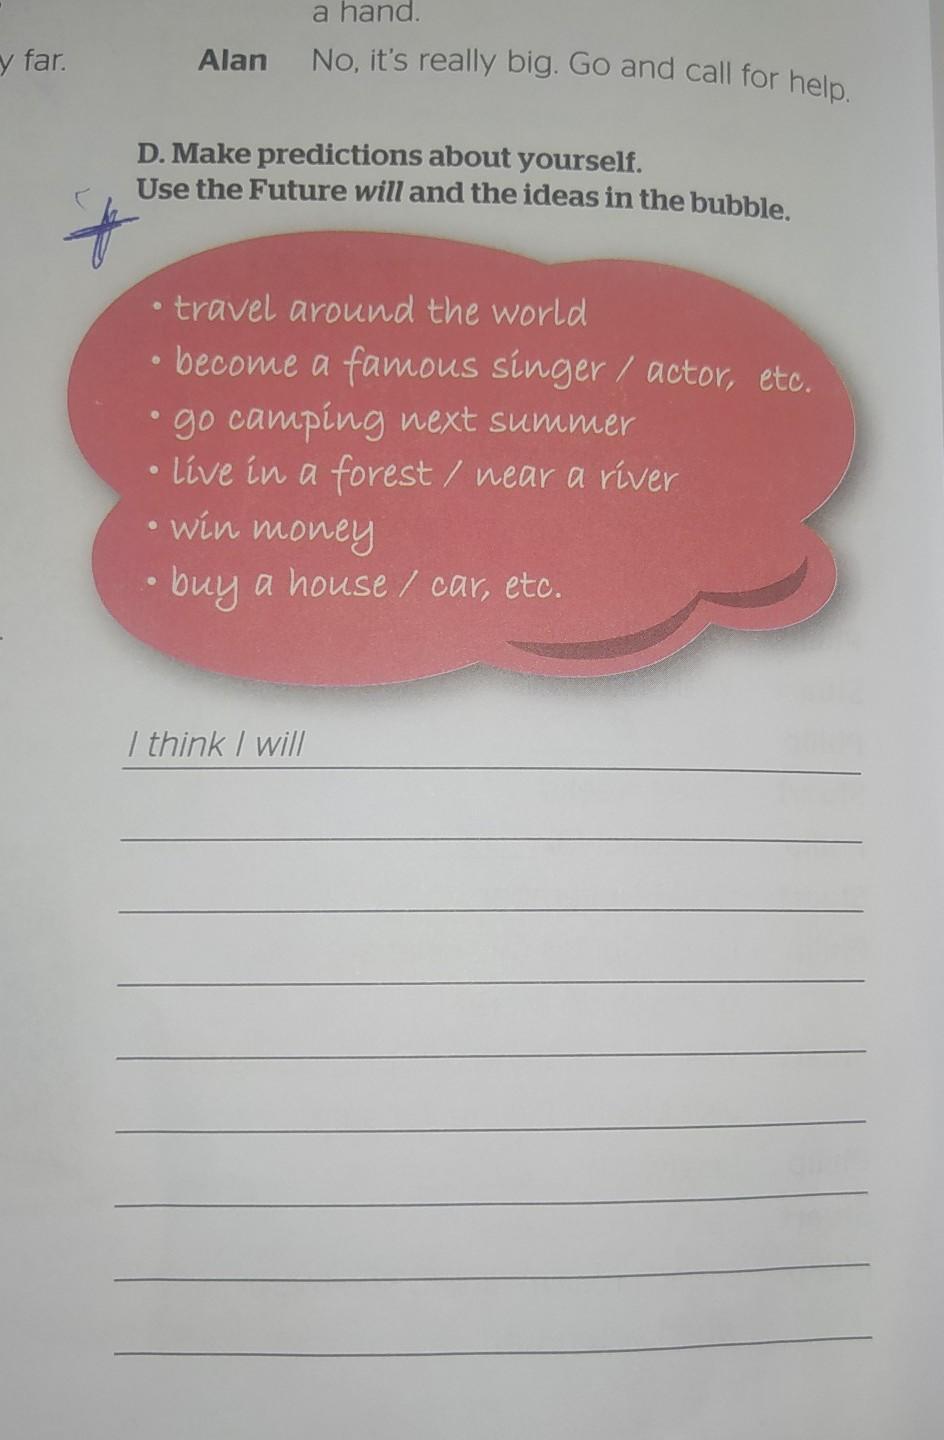 a hand.
y far.
Alan No, it's really big. Go and call for help.
D. Make predictions about yourself.
Use the Future will and the ideas in the bubble.
• travel around the world
• become a famous singer / actor, etc.
• go camping next summer
• live in a forest / near a river
• win money
• buy a house / car, etc.
I think I will